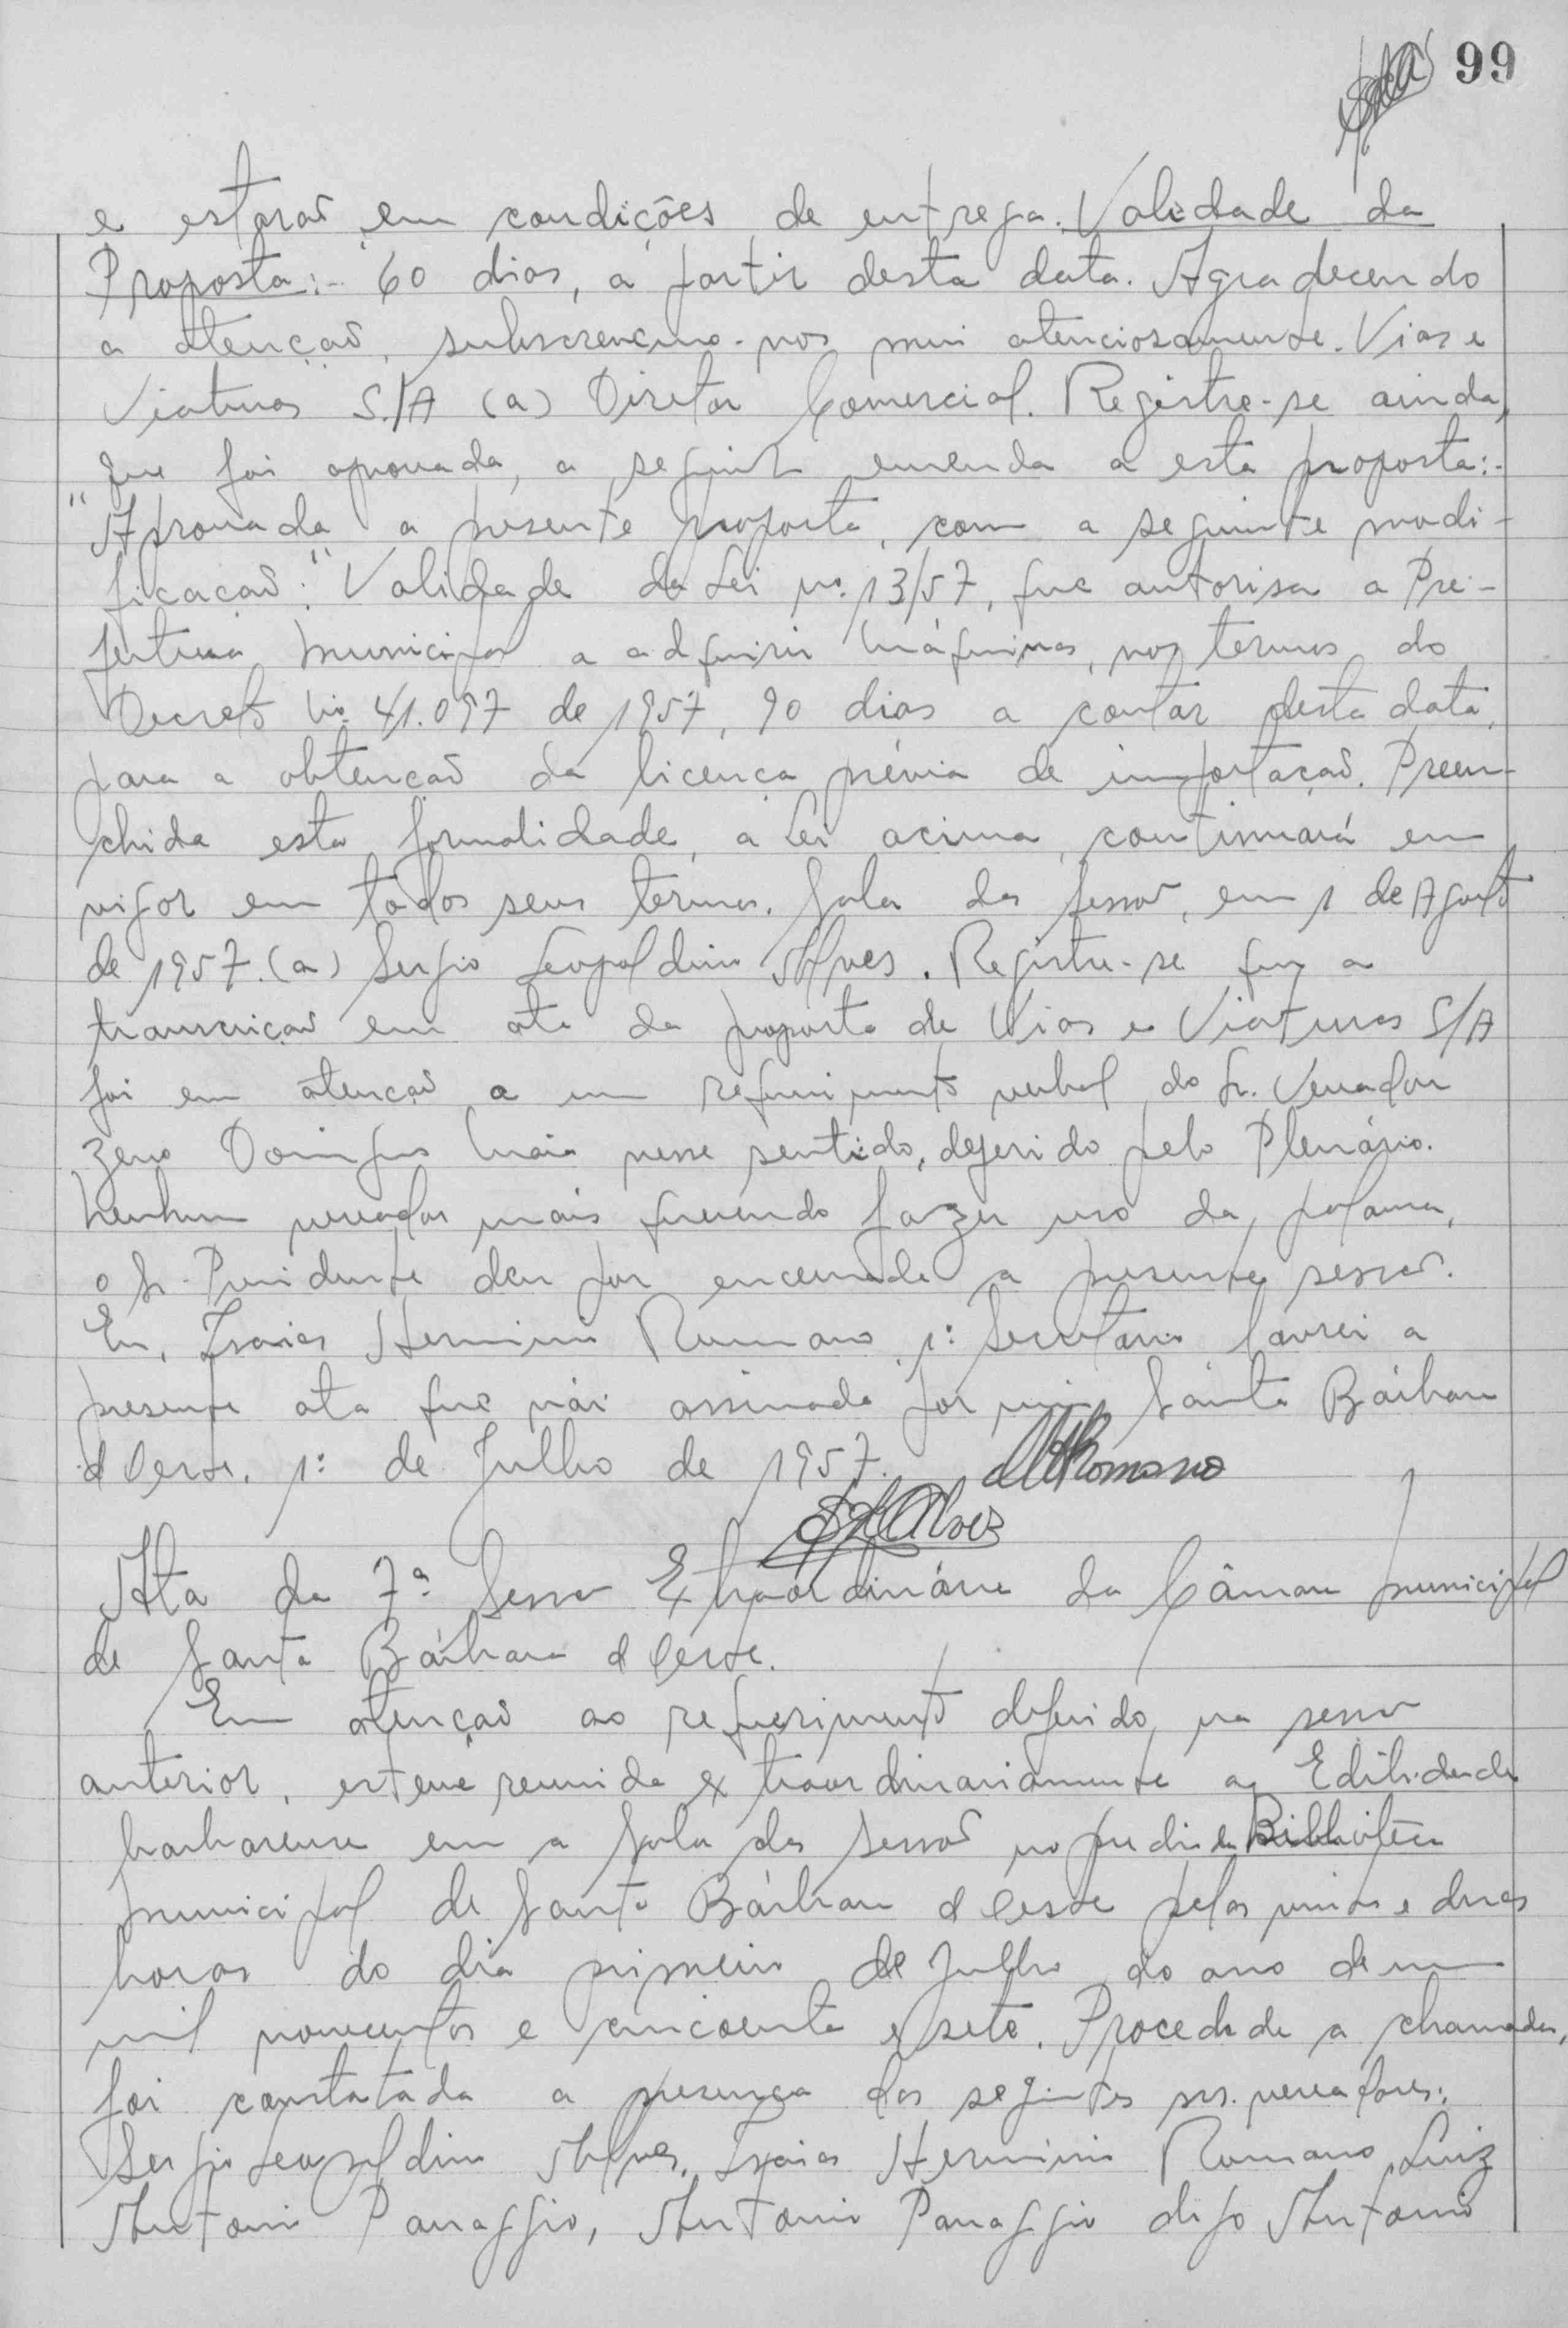 99
e estarão em condições de entrega. Validade da
Proposta:- 60 dias, a partir desta data. Agradecendo
a atenção, subscrevemo-nos mui atenciosamente. Vias e
Viaturas S/A (a) Diretor Comercial. Registre-se ainda,
que foi aprovada, a seguinte emenda a esta proposta:-
"Aprovada a presente proposta, com a seguinte modi-
ficação:" Validade da Lei nº. 13/57, que autorisa a Pre-
feitura Municipal a adquirir Máquinas, nos termos do
Decreto Nº. 41.097 de 1957, 90 dias a contar desta data,
para a obtenção da licença prévia de importação. Preen-
chida esta formalidade, a Lei acima, continuará em
vigor em todos seus termos. Sala das Sessão, em 1 de Agosto
de 1957. (a) Sergio Leopoldino Alves. Registre-se que a
transcrição em ata da proposta de Vias e Viaturas S/A
foi em atenção a um requerimento verbal do Sr. Vereador
Zeno Domingos Maia nesse sentido, deferido pelo Plenário.
Nenhum vereador mais querendo fazer uso da palavra,
o Sr. Presidente deu por encerrada a presente sessão.
Eu, Isaias Herminio Romano, 1º Secretario lavrei a
presente ata que vai assinada por mim, Santa Bárbara
d'Oeste, 1º de Julho de 1957. Romano
Alves
Ata da 7ª Sessão Extraordinária da Câmara municipal
de Santa Bárbara d'Oeste.
Em atenção ao requerimento deferido, na sessão
anterior, esteve reunida extraordinariamente a Edilidade
barbarense em a Sala das Sessão no predio da Biblioteca
municipal de Santa Bárbara d'Oeste pelas vinte e duas
horas do dia primeiro de Julho do ano de um
mil novecentos e cincoenta e sete. Procedida a chamada,
foi constatada a presença dos seguintes srs. vereadores:
Sergio Leopoldino Alves, Isaias Herminio Romano, Luiz
Antonio Panaggio, Antonio Panaggio digo Antonio